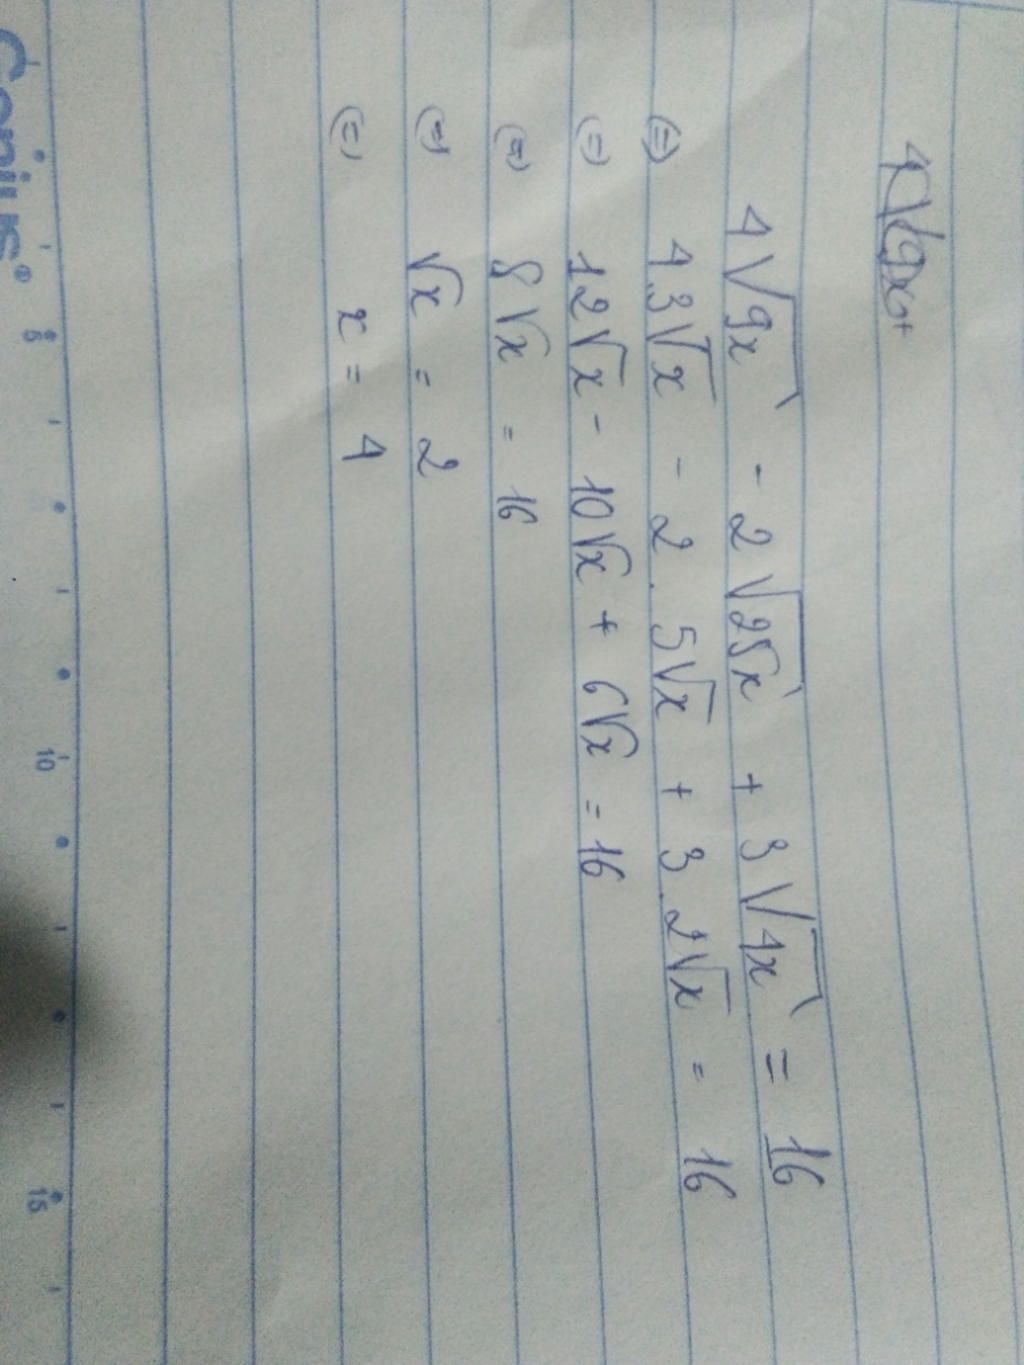 4√9x - 2√25x + 3√4x = 16
(=) 4.3√x - 2.5√x + 3.2√x = 16
(=) 12√x - 10√x + 6√x = 16
(=) 8√x = 16
(=) √x = 2
(=) x = 4
Genius®
5
10
15